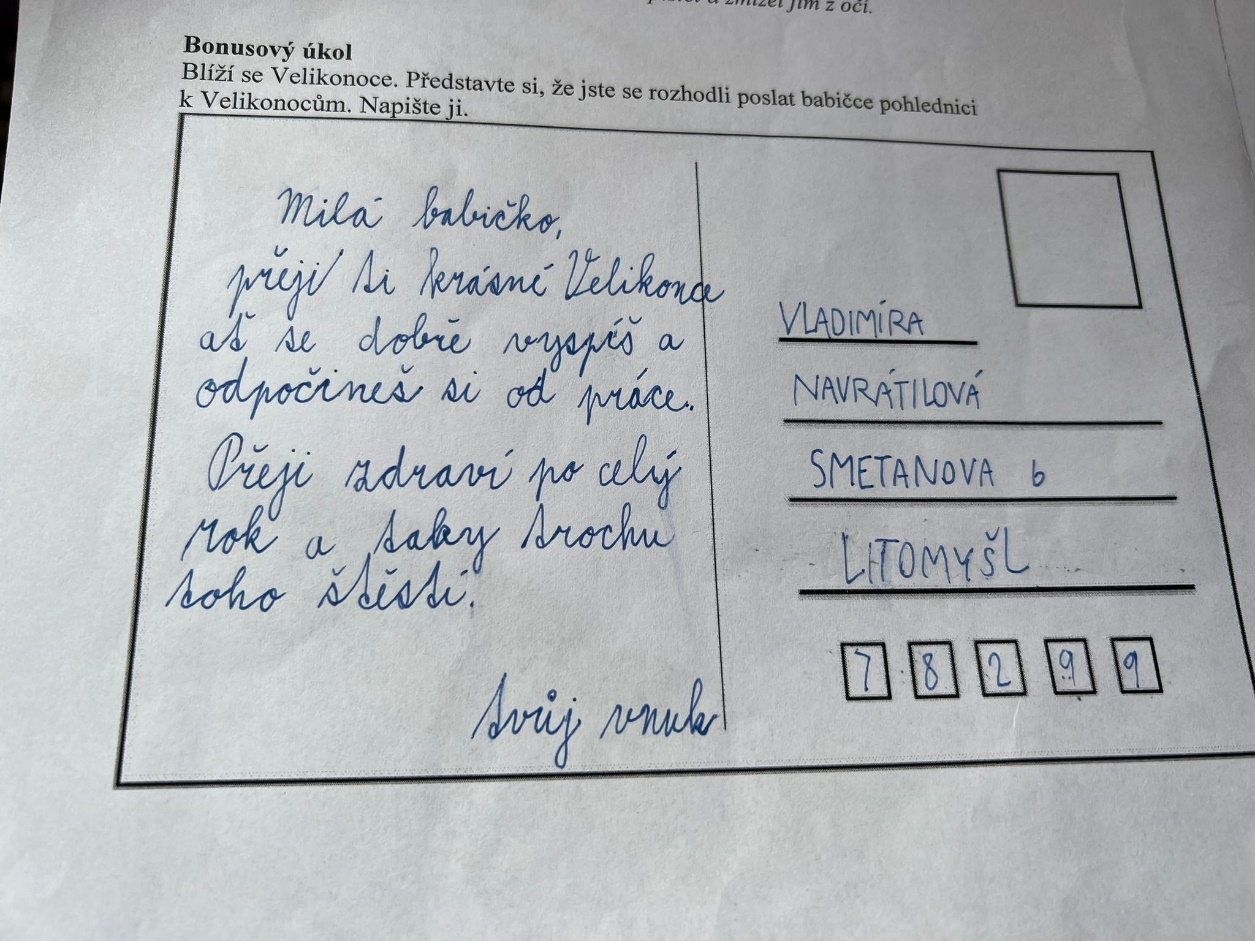 a zmizel jim z očí.
Bonusový úkol
Blíží se Velikonoce. Představte si, že jste se rozhodli poslat babičce pohlednici
k Velikonocům. Napište ji.
Milá babičko,
přeji ti krásné Velikonoce
ať se dobře vyspíš a
odpočineš si od práce.
Přeji zdraví po celý
rok a taky trochu
toho štěstí.
tvůj vnuk
VLADIMÍRA
NAVRÁTILOVÁ
SMETANOVA 6
LITOMYŠL
7 8 2 9 9